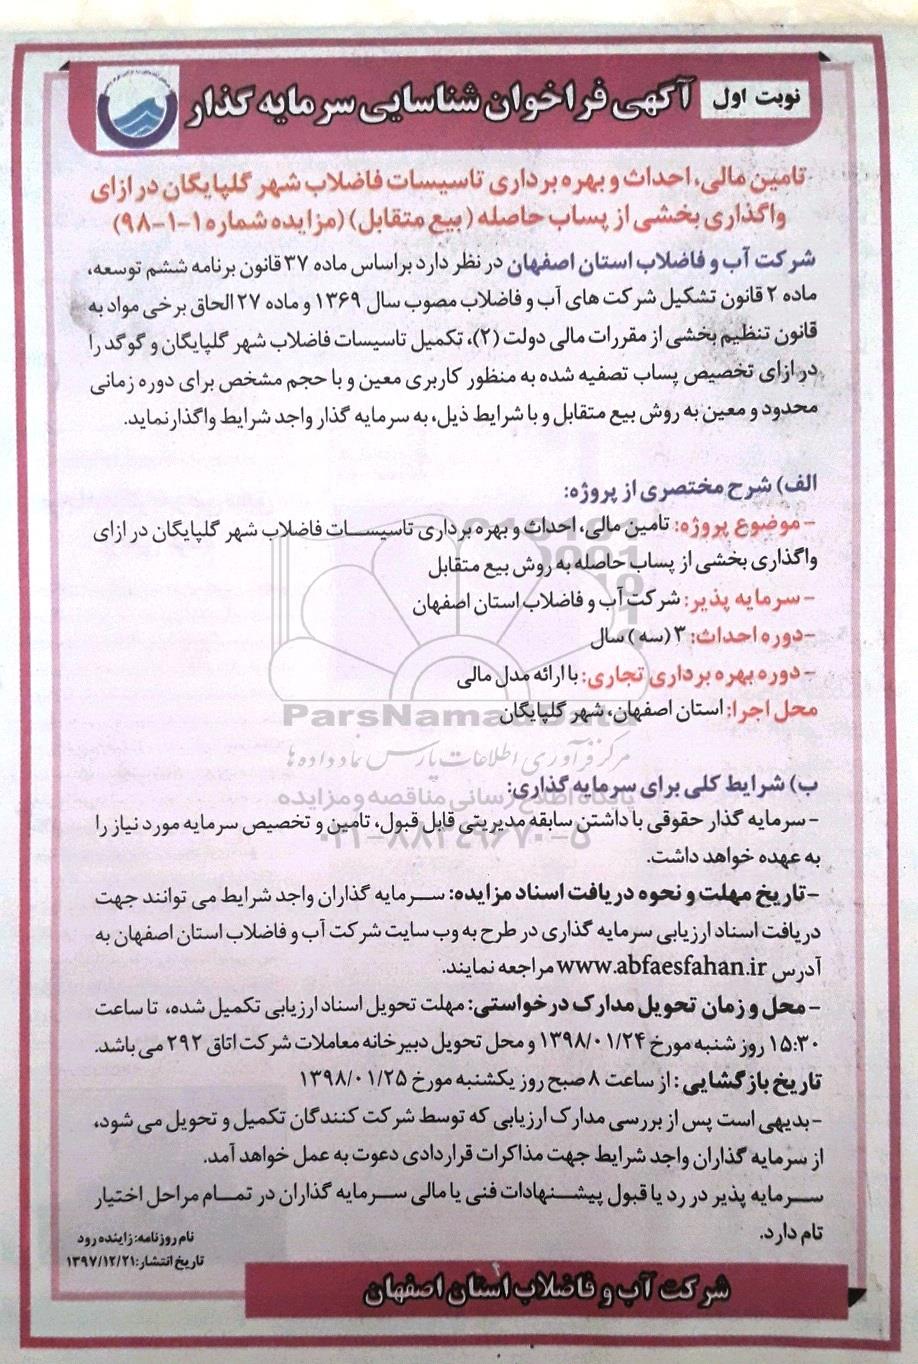 نوبت اول
آگهی فراخوان شناسایی سرمایه گذار
تامین مالی، احداث و بهره برداری تاسیسات فاضلاب شهر گلپایگان در ازای
واگذاری بخشی از پساب حاصله (بیع متقابل) (مزایده شماره ۱-۱-۹۸)
شرکت آب و فاضلاب استان اصفهان در نظر دارد براساس ماده ۳۷ قانون برنامه ششم توسعه،
ماده ۲ قانون تشکیل شرکت های آب و فاضلاب مصوب سال ۱۳۶۹ و ماده ۲۷ الحاق برخی مواد به
قانون تنظیم بخشی از مقررات مالی دولت (۲)، تکمیل تاسیسات فاضلاب شهر گلپایگان و گوگد را
در ازای تخصیص پساب تصفیه شده به منظور کاربری معین و با حجم مشخص برای دوره زمانی
محدود و معین به روش بیع متقابل و با شرایط ذیل، به سرمایه گذار واجد شرایط واگذار نماید.
الف) شرح مختصری از پروژه:
- موضوع پروژه: تامین مالی، احداث و بهره برداری تاسیسات فاضلاب شهر گلپایگان در ازای
واگذاری بخشی از پساب حاصله به روش بیع متقابل
- سرمایه پذیر: شرکت آب و فاضلاب استان اصفهان
-دوره احداث: ۳ (سه) سال
- دوره بهره برداری تجاری: با ارائه مدل مالی
محل اجرا: استان اصفهان، شهر گلپایگان
ParsNamadData
مرکز فرآوری اطلاعات پارس نماد داده ها
ب) شرایط کلی برای سرمایه گذاری:
پایگاه اطلاع رسانی مناقصه و مزایده
- سرمایه گذار حقوقی با داشتن سابقه مدیریتی قابل قبول، تامین و تخصیص سرمایه مورد نیاز را
۰۲۱-۸۸۳۴۹۶۷۰-۵
به عهده خواهد داشت.
- تاریخ مهلت و نحوه دریافت اسناد مزایده: سرمایه گذاران واجد شرایط می توانند جهت
دریافت اسناد ارزیابی سرمایه گذاری در طرح به وب سایت شرکت آب و فاضلاب استان اصفهان به
آدرس www.abfaesfahan.ir مراجعه نمایند.
- محل و زمان تحویل مدارک درخواستی: مهلت تحویل اسناد ارزیابی تکمیل شده، تا ساعت
۱۵:۳۰ روز شنبه مورخ ۱۳۹۸/۰۱/۲۴ و محل تحویل دبیرخانه معاملات شرکت اتاق ۲۹۲ می باشد.
تاریخ بازگشایی: از ساعت ۸ صبح روز یکشنبه مورخ ۱۳۹۸/۰۱/۲۵
- بدیهی است پس از بررسی مدارک ارزیابی که توسط شرکت کنندگان تکمیل و تحویل می شود،
از سرمایه گذاران واجد شرایط جهت مذاکرات قراردادی دعوت به عمل خواهد آمد.
سرمایه پذیر در رد یا قبول پیشنهادات فنی یا مالی سرمایه گذاران در تمام مراحل اختیار
تام دارد.
نام روزنامه: زاینده رود
تاریخ انتشار: ۱۳۹۷/۱۲/۲۱
شرکت آب و فاضلاب استان اصفهان